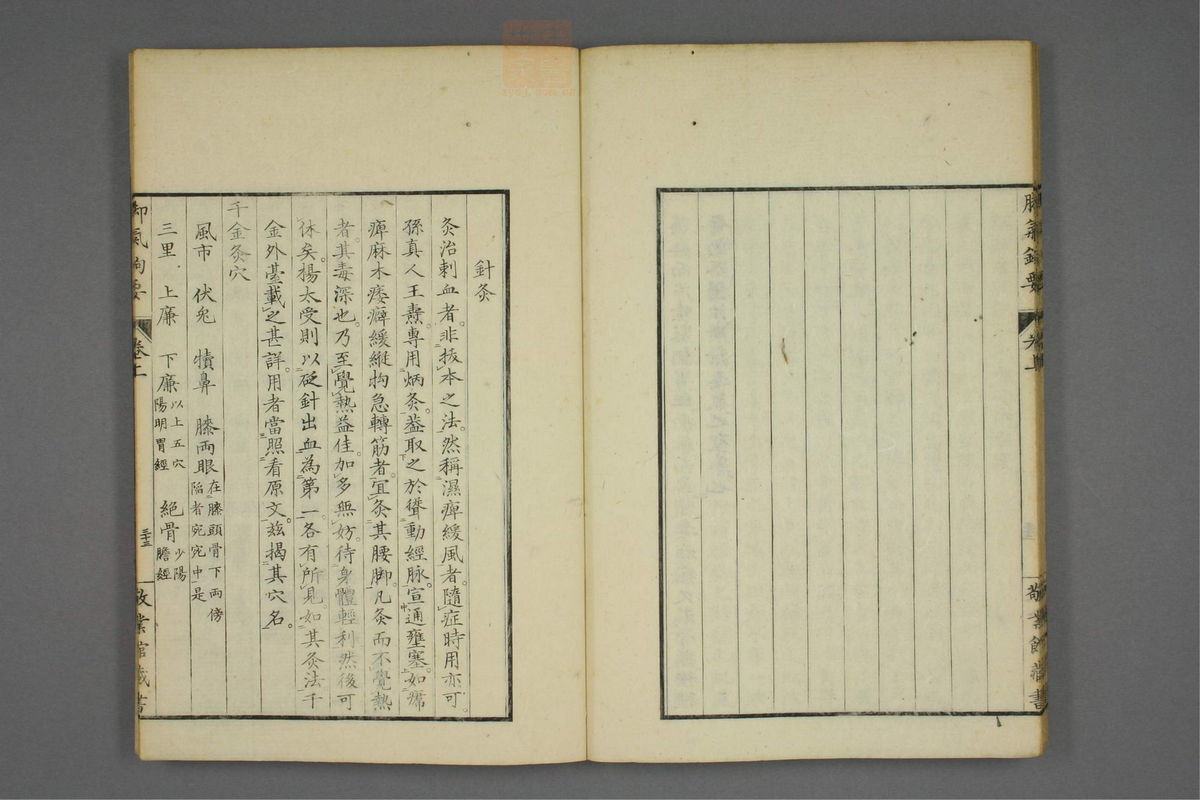 脚氣鉤要
卷上
敬業館藏書
針灸
灸治刺血者。非拔本之法。然稱濕痺緩風者。隨症時用亦可。
孫真人王燾專用炳灸。蓋取之於聳動經脉。宣通壅塞。如𤸷
痺麻木痿癖緩縱拘急轉筋者。宜灸其腰脚。凡灸而不覺熱
者。其毒深也。乃至覺熱益佳。加多無妨。待身體輕利然後可
休矣。楊太受則以砭針出血為第一。各有所見。如其灸法千
金外臺載之甚詳。用者當照看原文。茲揭其穴名。
千金灸穴
風市 伏兎 犢鼻 膝両眼 在膝頭骨下両傍
陷者宛宛中是
三里 上廉 下廉 以上五穴
陽明胃經 絶骨 少陽
膽經
脚氣鉤要
卷上
三十五
敬業館藏書